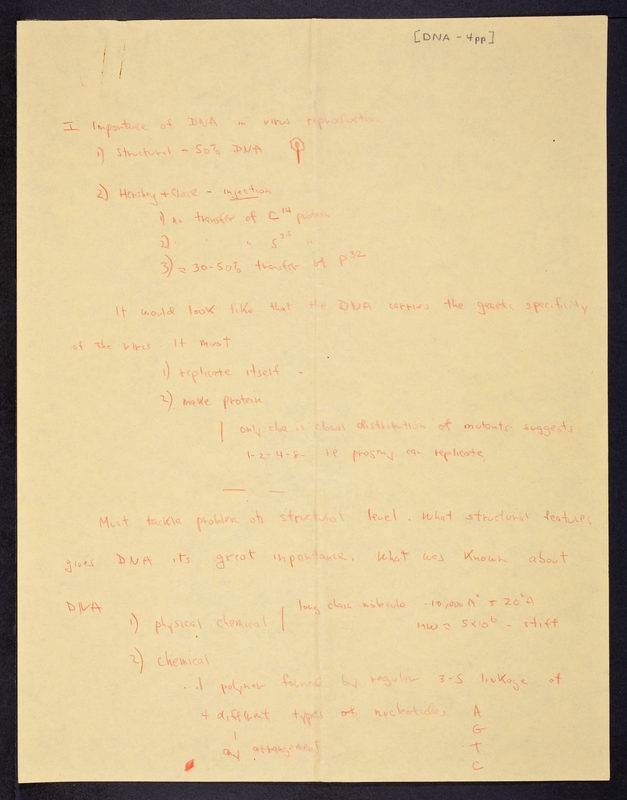 [DNA - 4pp]
I Importance of DNA in virus reproduction
1) Structural - 50% DNA
2) Hershey + Chase - injection
1) no transfer of C14 protein
2) " " S35 "
3) = 30-50% transfer of P32
It would look like that the DNA carries the genetic specificity
of the virus It must
1) replicate itself -
2) make protein
only clue is clonal distribution of mutants suggests
1-2-4-8- ie progeny can replicate
Must tackle problem at structural level. What structural features
gives DNA its great importance. What was known about
DNA
1) physical chemical | long chain molecule - 10,000 A° = 20°A
MW = 5x10^6 - stiff
2) chemical
1 polymer formed by regular 3-5 linkage of
4 different types of nucleotides A
G
any arrangement T
C